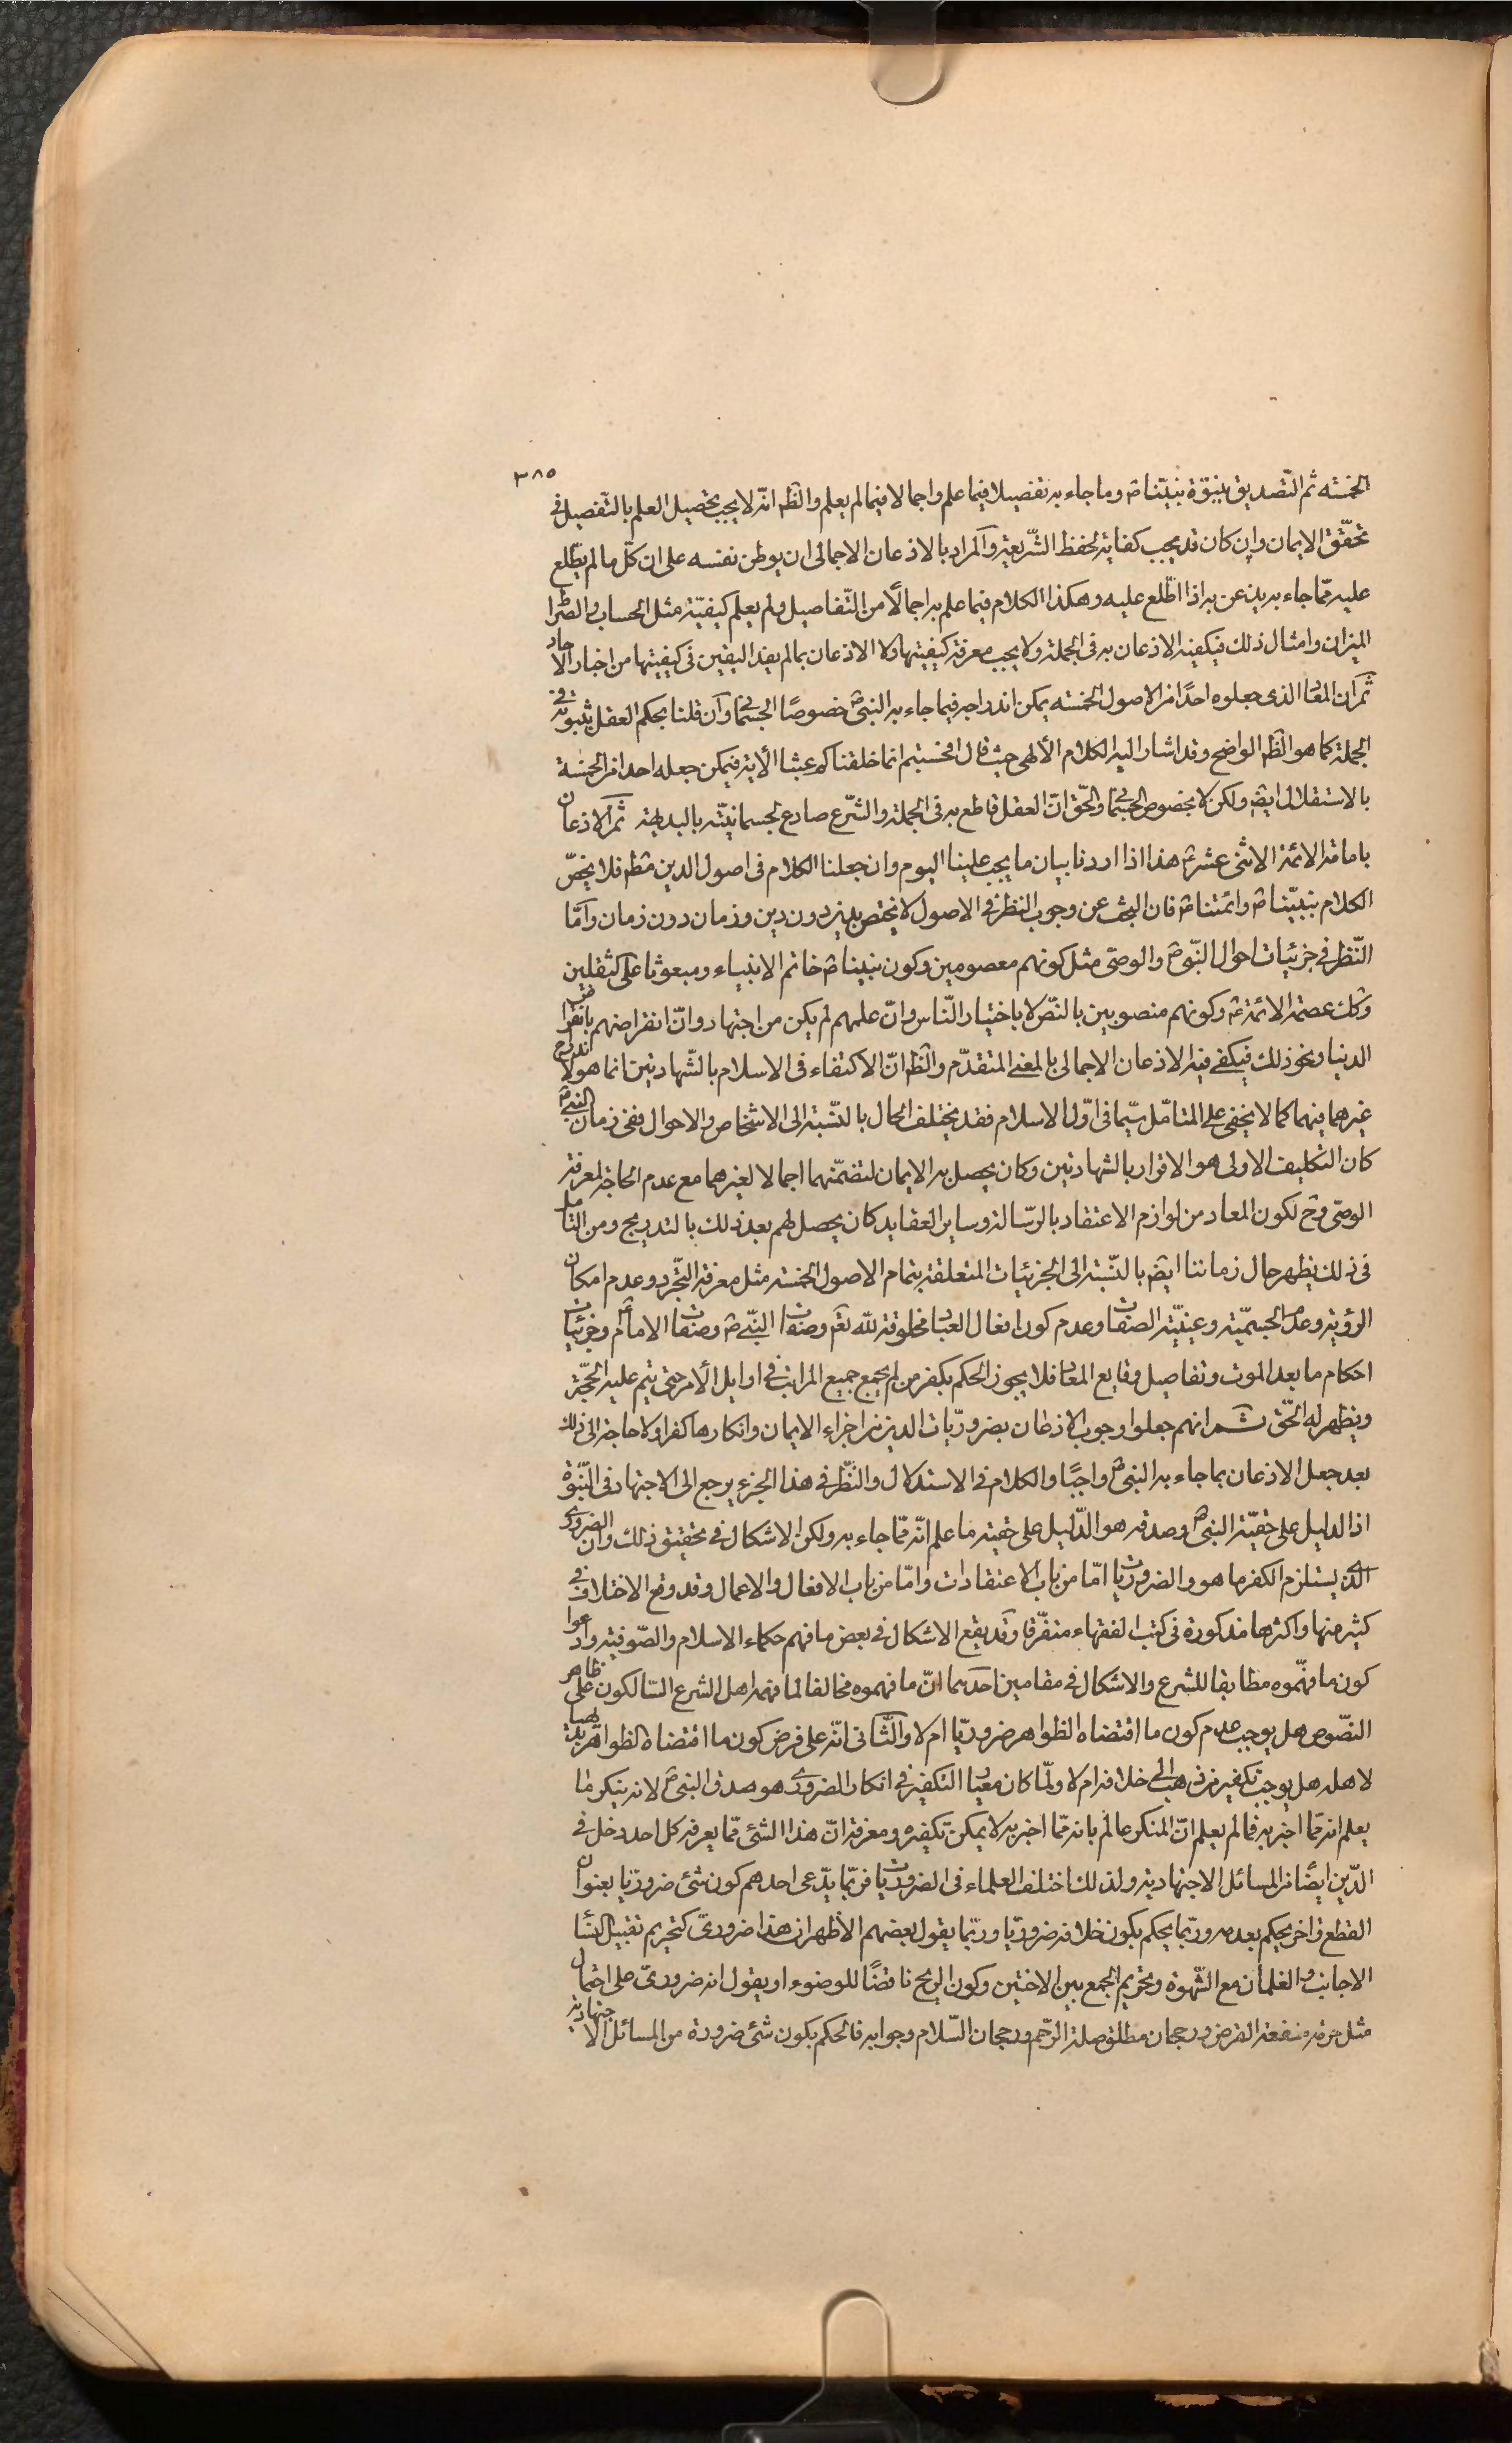 ٣٨٥
الخمسه ثم التّصديق بنبوّة نبيّنا ص وما جاء به تفصيلا فيما علم واجمالا فيما لم يعلم والظ انّه لا يجب تحصيل العلم بالتّفصيل فى
تحقّق الايمان وان كان قد يجب كفاية لحفظ الشّريعة والمراد بالاذعان الاجمالى ان يوطن نفسه على ان كلّ ما لم يطّلع
عليه ممّا جاء به يذعن به اذا اطّلع عليه وهكذا الكلام فيما علم به اجمالًا من التّفاصيل ولم يعلم كيفيّة مثل الحساب والصّراط
الميزان وامثال ذلك فيكفيه الاذعان به فى الجملة ولا يجب معرفة كيفيتها ولا الاذعان بما لم يفد اليقين فى كيفيتها من اخبار الاحاد
ثمّ ان المعاد الذى جعلوه احدًا من الاصول الخمسه يمكن اندراجه فيما جاء به النبى ص خصوصًا الجسمانى وان قلنا بحكم العقل بثبوته فى
الجملة كما هو الظ الواضح وقد اشار اليه الكلام الألهى حيث قال افحسبتم انما خلقناكم عبثا الأية فيمكن جعله احدا من الخمسة
بالاستقلال ايضا ولكن لا بخصوص الجسمانى والحّق انّ العقل قاطع به فى الجملة والشّرع صادع لجسمانيّته بالبديهة ثمّ الاذعان
بامامة الائمة الاثنى عشر ع هذا اذا اردنا بيان ما يجب علينا اليوم وان جعلنا الكلام فى اصول الدين مط فلا يخصّ
الكلام بنبيّنا ص وائمتنا ع فان البحث عن وجوب النظر فى الاصول لا يختص بدين دون دين وزمان دون زمان وامّا
النّظر فى جزئيات احوال النّبى ص والوصى مثل كونهم معصومين وكون نبينا ص خاتم الانبياء ومبعوثا على الثقلين
وكك عصمة الائمة ع وكونهم منصوبين بالنصّ لا باختيار النّاس وانّ علمهم لم يكن من اجتهاد وانّ انقراضهم بانقراض
الدنيا ونحو ذلك فيكفى فيه الاذعان الاجمالى بالمعنى المتقدّم والظ انّ الاكتفاء فى الاسلام بالشّهادتين انما هو لاندراج
غيرهما فيهما كما لا يخفى على المتامّل سيّما فى اوّل الاسلام فقد يختلف الحال بالنّسبة الى الاشخاص والاحوال ففى زمان النبى ص
كان التكليف الاولى هو الاقرار بالشهادتين وكان يحصل به الايمان لتضمّنهما اجمالا لغيرهما مع عدم الحاجة لمعرفة
الوصى وح لكون المعاد من لوازم الاعتقاد بالرّسالة وساير العقايد كان يحصل لهم بعد ذلك بالتدريج ومن التامل
فى ذلك يظهر حال زماننا ايضا بالنّسبة الى الجزئيات المتعلقة بتمام الاصول الخمسة مثل معرفة التّجرد وعدم امكان
الرؤية وعدم الجسميّة وعينيّة الصفات وعدم كون افعال العباد مخلوقة للّه تعم وصفات النّبى ص وصفات الامام ع وجزئيات
احكام ما بعد الموت وتفاصيل وقايع المعاد فلا يجوز الحكم بكفر من لم يجمع جميع المراتب فى اوايل الأمر حتى يتم عليه الحجّة
ويظهر له الحّق ثم انهم جعلوا وجوب الاذعان بضروريّات الدين من اجزاء الايمان وانكارها كفرا ولا حاجة الى ذلك
بعد جعل الاذعان بما جاء به النبى ص واجبًا والكلام فى الاستدلال والنّظر فى هذا الجزء يرجع الى الاجتهاد فى النّبوّة
اذ الدليل على حقيّة النبى ص وصدقه هو الدّليل على حقيّة ما علم انّه ممّا جاء به ولكن الاشكال فى تحقيق ذلك وان الضرورى
الذى يستلزم الكفر ما هو والضروريات امّا من باب الاعتقادات وامّا من باب الافعال والاعمال وقد وقع الاختلاف فى
كثير منها واكثرها مذكورة فى كتب الفقهاء متفرّقا وقد يقع الاشكال فى بعض ما فهم حكماء الاسلام والصّوفية وادعوا
كون ما فهّموه مطابقا للشرع والاشكال فى مقامين احدهما انّ ما فهموه مخالفا لما فهمه اهل الشرع السّالكون على ظاهر
النصّوص هل يوجب عدم كون ما اقتضاه الظواهر ضروريّا ام لا والثّانى انّه على فرض كون ما اقتضاه الظواهر بديهيا
لاهله هل يوجب تكفير من ذهب الى خلافه ام لا ولمّا كان معيار التكفير فى انكار الضرورى هو صدق النبى ص لانه ينكر ما
يعلم انه ممّا اخبر به فما لم يعلم انّ المنكر عالم بانه ممّا اخبر به لا يمكن تكفيره ومعرفة انّ هذا الشئ ممّا يعرفه كل احد دخل فى
الدّين ايضًا من المسائل الاجتهادية ولذلك اختلف العلماء فى الضروريات فربّما يدّعى احدهم كون شئ ضروريّا بعنوان
القطع واخر يحكم بعدمه وربّما يحكم بكون خلافه ضروريّا وربّما يقول بعضهم الأظهر ان هذا ضرورىّ كتحريم تقبيل النساء
الاجانب والغلمان مع الشّهوة وتحريم الجمع بين الاختين وكون الريح ناقضًا للوضوء او يقول انه ضرورىّ على احتمال
مثل حرمة منفعة القرض ورجحان مطلق صلة الرّحم ورجحان السّلام وجوابه فالحكم بكون شئ ضرورة من المسائل الاجتهادية